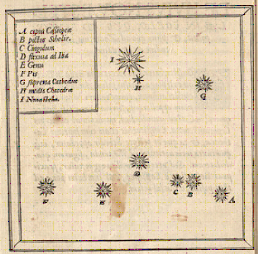 A caput Cassiopeæ
B pectus Schedir.
C Cingulum
D flexura ad Ilia
E Genu
F Pes
G suprema Cathedræ
H media Chatedræ
I Noua stella.
I
H
G
D
C B
F
E
A